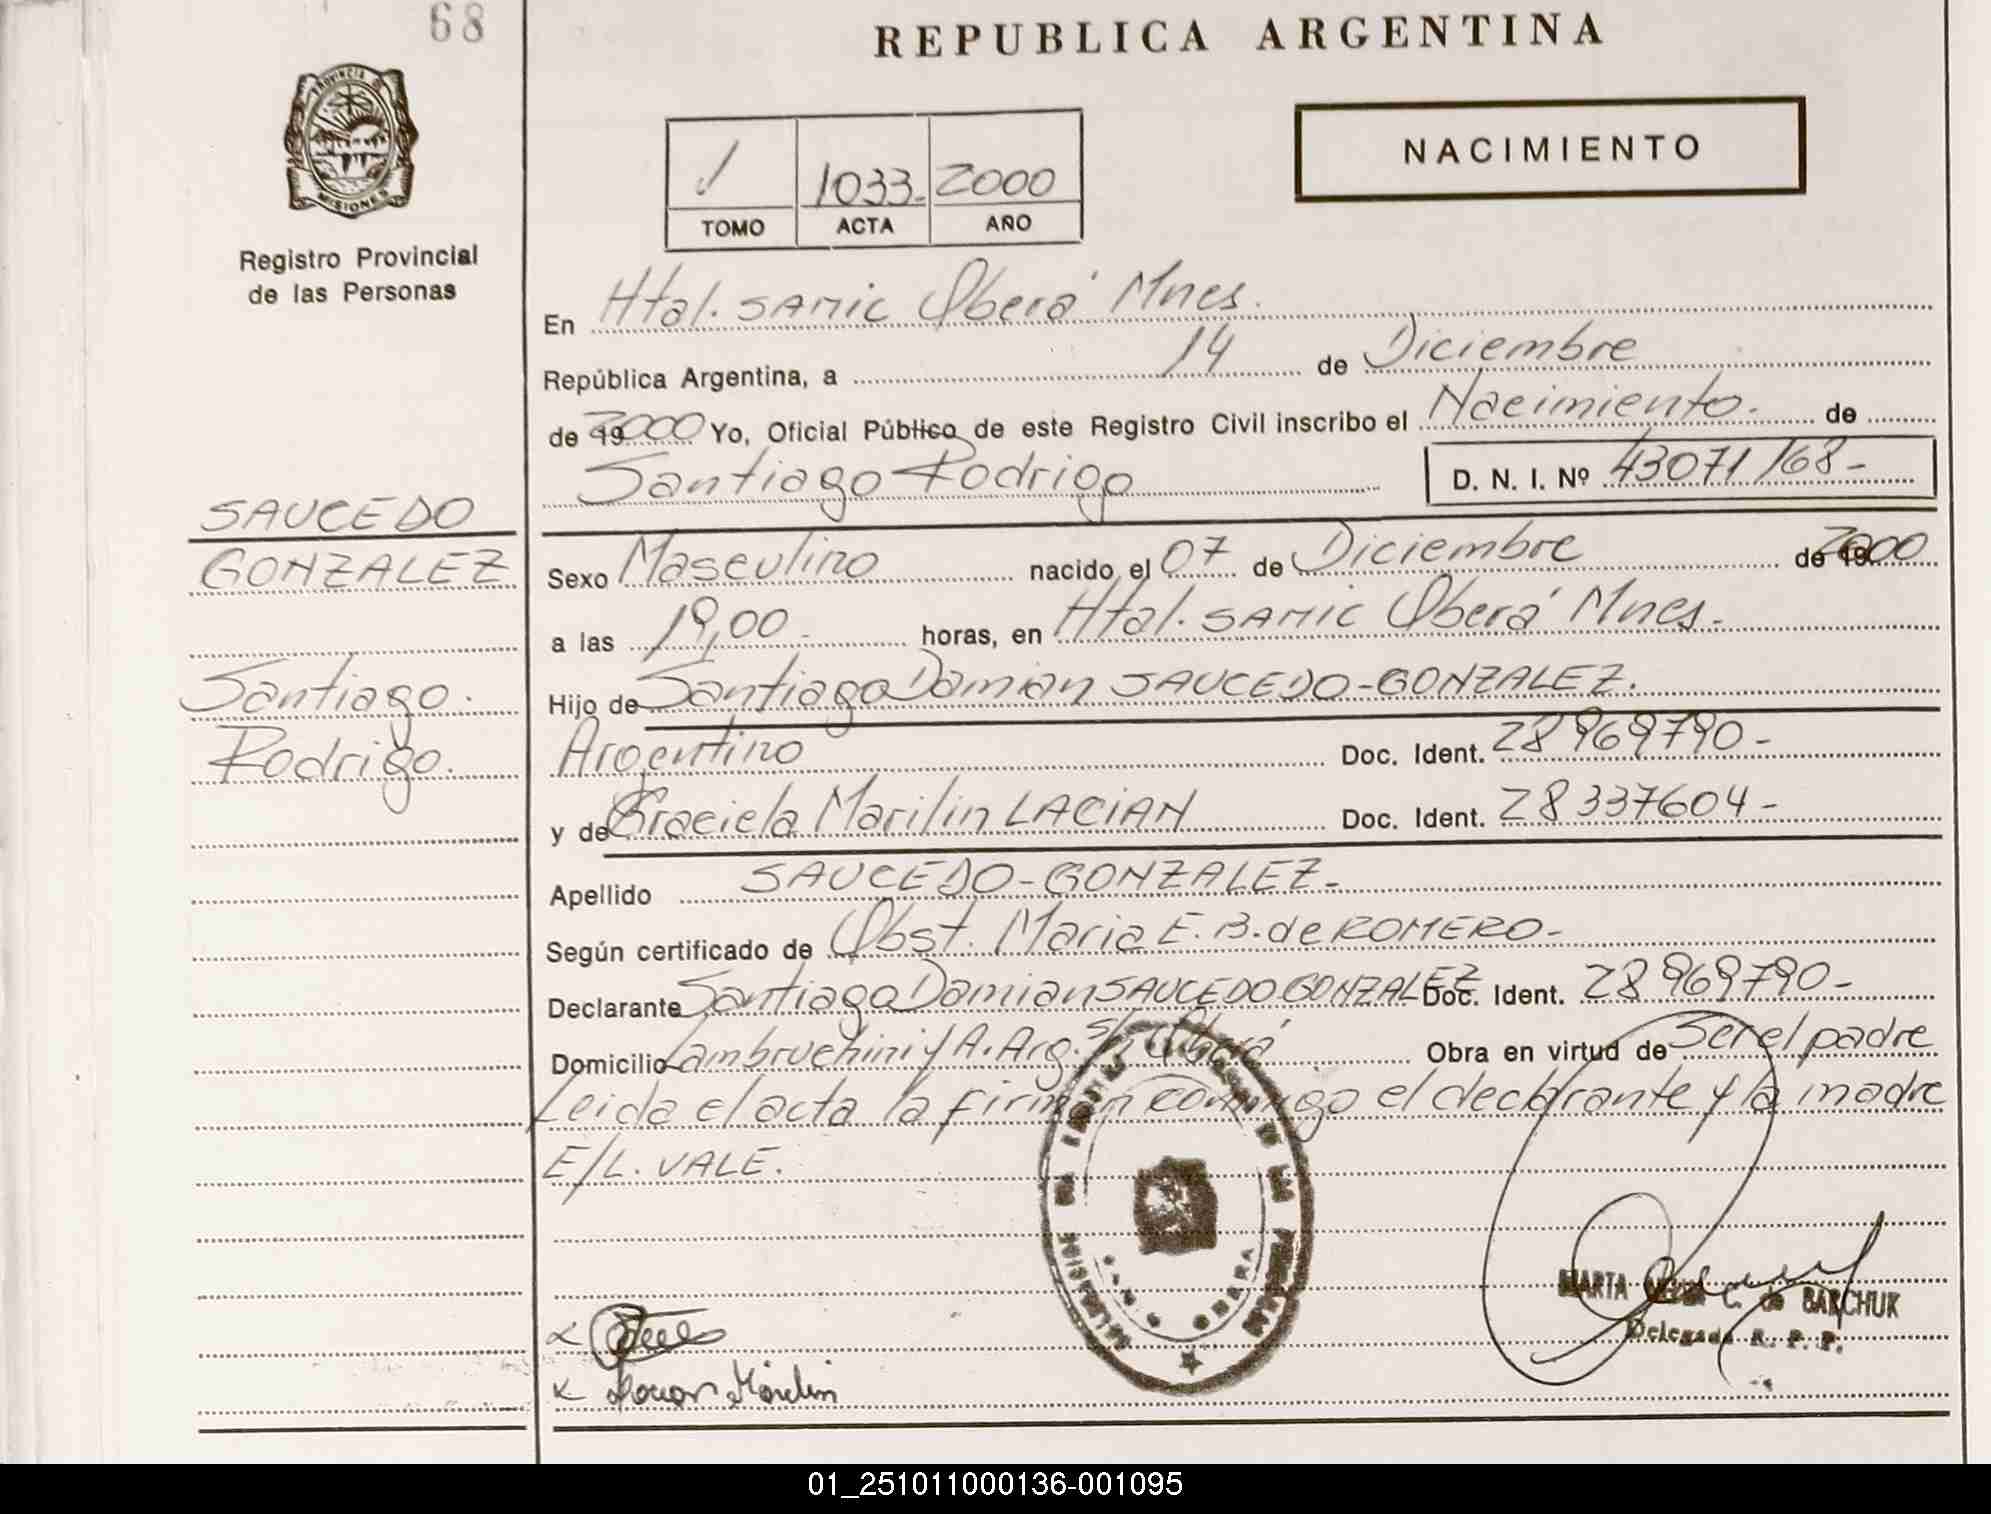 68
REPUBLICA ARGENTINA
PROVINCIA DE
MISIONES
Registro Provincial
de las Personas
NACIMIENTO
1 1033- 2000
TOMO ACTA AÑO
En Htal. SAMIC Oberá Mnes.
República Argentina, a 14 de Diciembre
de 19 2000 Yo, Oficial Público de este Registro Civil inscribo el Nacimiento. de
Santiago Rodrigo D. N. I. Nº 43071168-
SAUCEDO
GONZALEZ
Santiago.
Rodrigo.
Sexo Masculino nacido el 07 de Diciembre de 19 2000
a las 19,00- horas, en Htal. SAMIC Oberá Mnes.
Hijo de Santiago Damian SAUCEDO-GONZALEZ.
Argentino Doc. Ident. 28969790-
y de Graciela Marilin LACIAN Doc. Ident. 28337604-
Apellido SAUCEDO-GONZALEZ-
Según certificado de Obst. Maria E. B. de ROMERO-
Declarante Santiago Damian SAUCEDO GONZALEZ Doc. Ident. 28969790-
Domicilio Lambruchini y A. Arg. S/n Oberá Obra en virtud de Ser el padre
Leida el acta la firman conmigo el declarante y la madre
E/L. VALE.
OBERA
MARTA C. de BARCHUK
Delegada R. P. P.
01_251011000136-001095